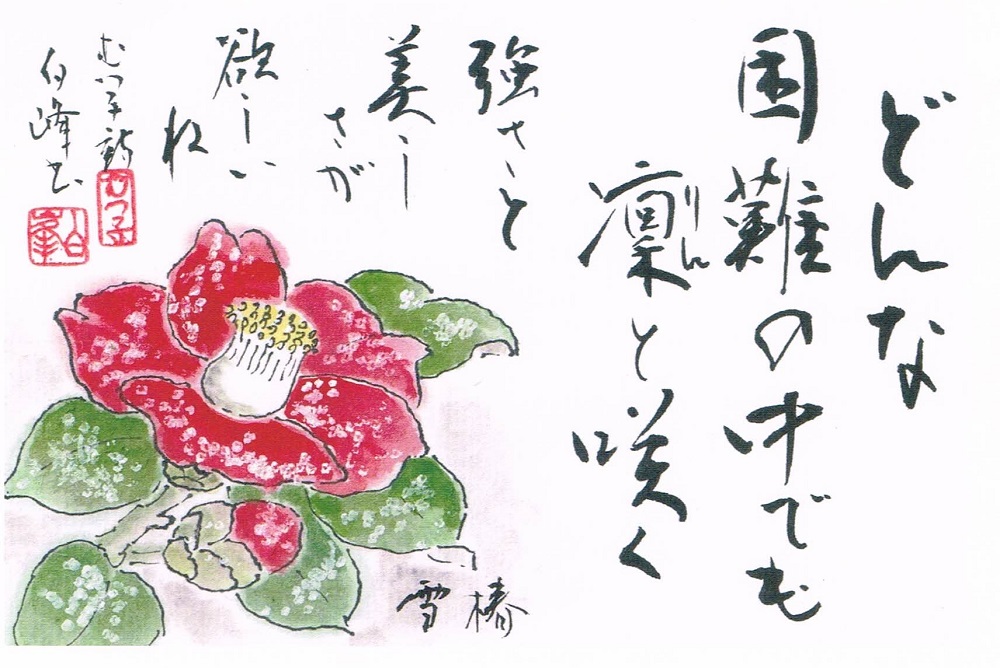 どんな
困難の中でも
凛と咲く
りん
強さと
美し
さが
欲しい
ね
むつ子詩
白峰書
むつ子
白峯
雪椿